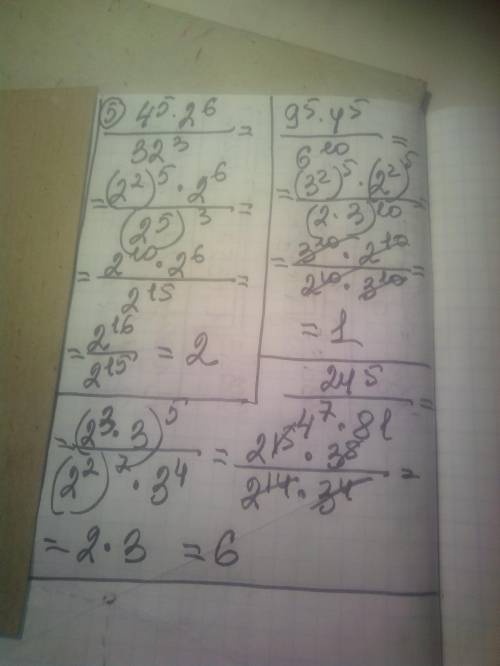 ⑤ (4⁵ · 2⁶)/(32³) =
= ((2²)⁵ · 2⁶)/((2⁵)³) =
= (2¹⁰ · 2⁶)/(2¹⁵) =
= 2¹⁶/2¹⁵ = 2
(9⁵ · 4⁵)/(6¹⁰) =
= ((3²)⁵ · (2²)⁵)/((2 · 3)¹⁰) =
= (3¹⁰ · 2¹⁰)/(2¹⁰ · 3¹⁰) =
= 1
(24⁵)/(4⁷ · 81) =
= ((2³ · 3)⁵)/((2²)⁷ · 3⁴) = (2¹⁵ · 3⁸)/(2¹⁴ · 3⁴) =
= 2 · 3 = 6